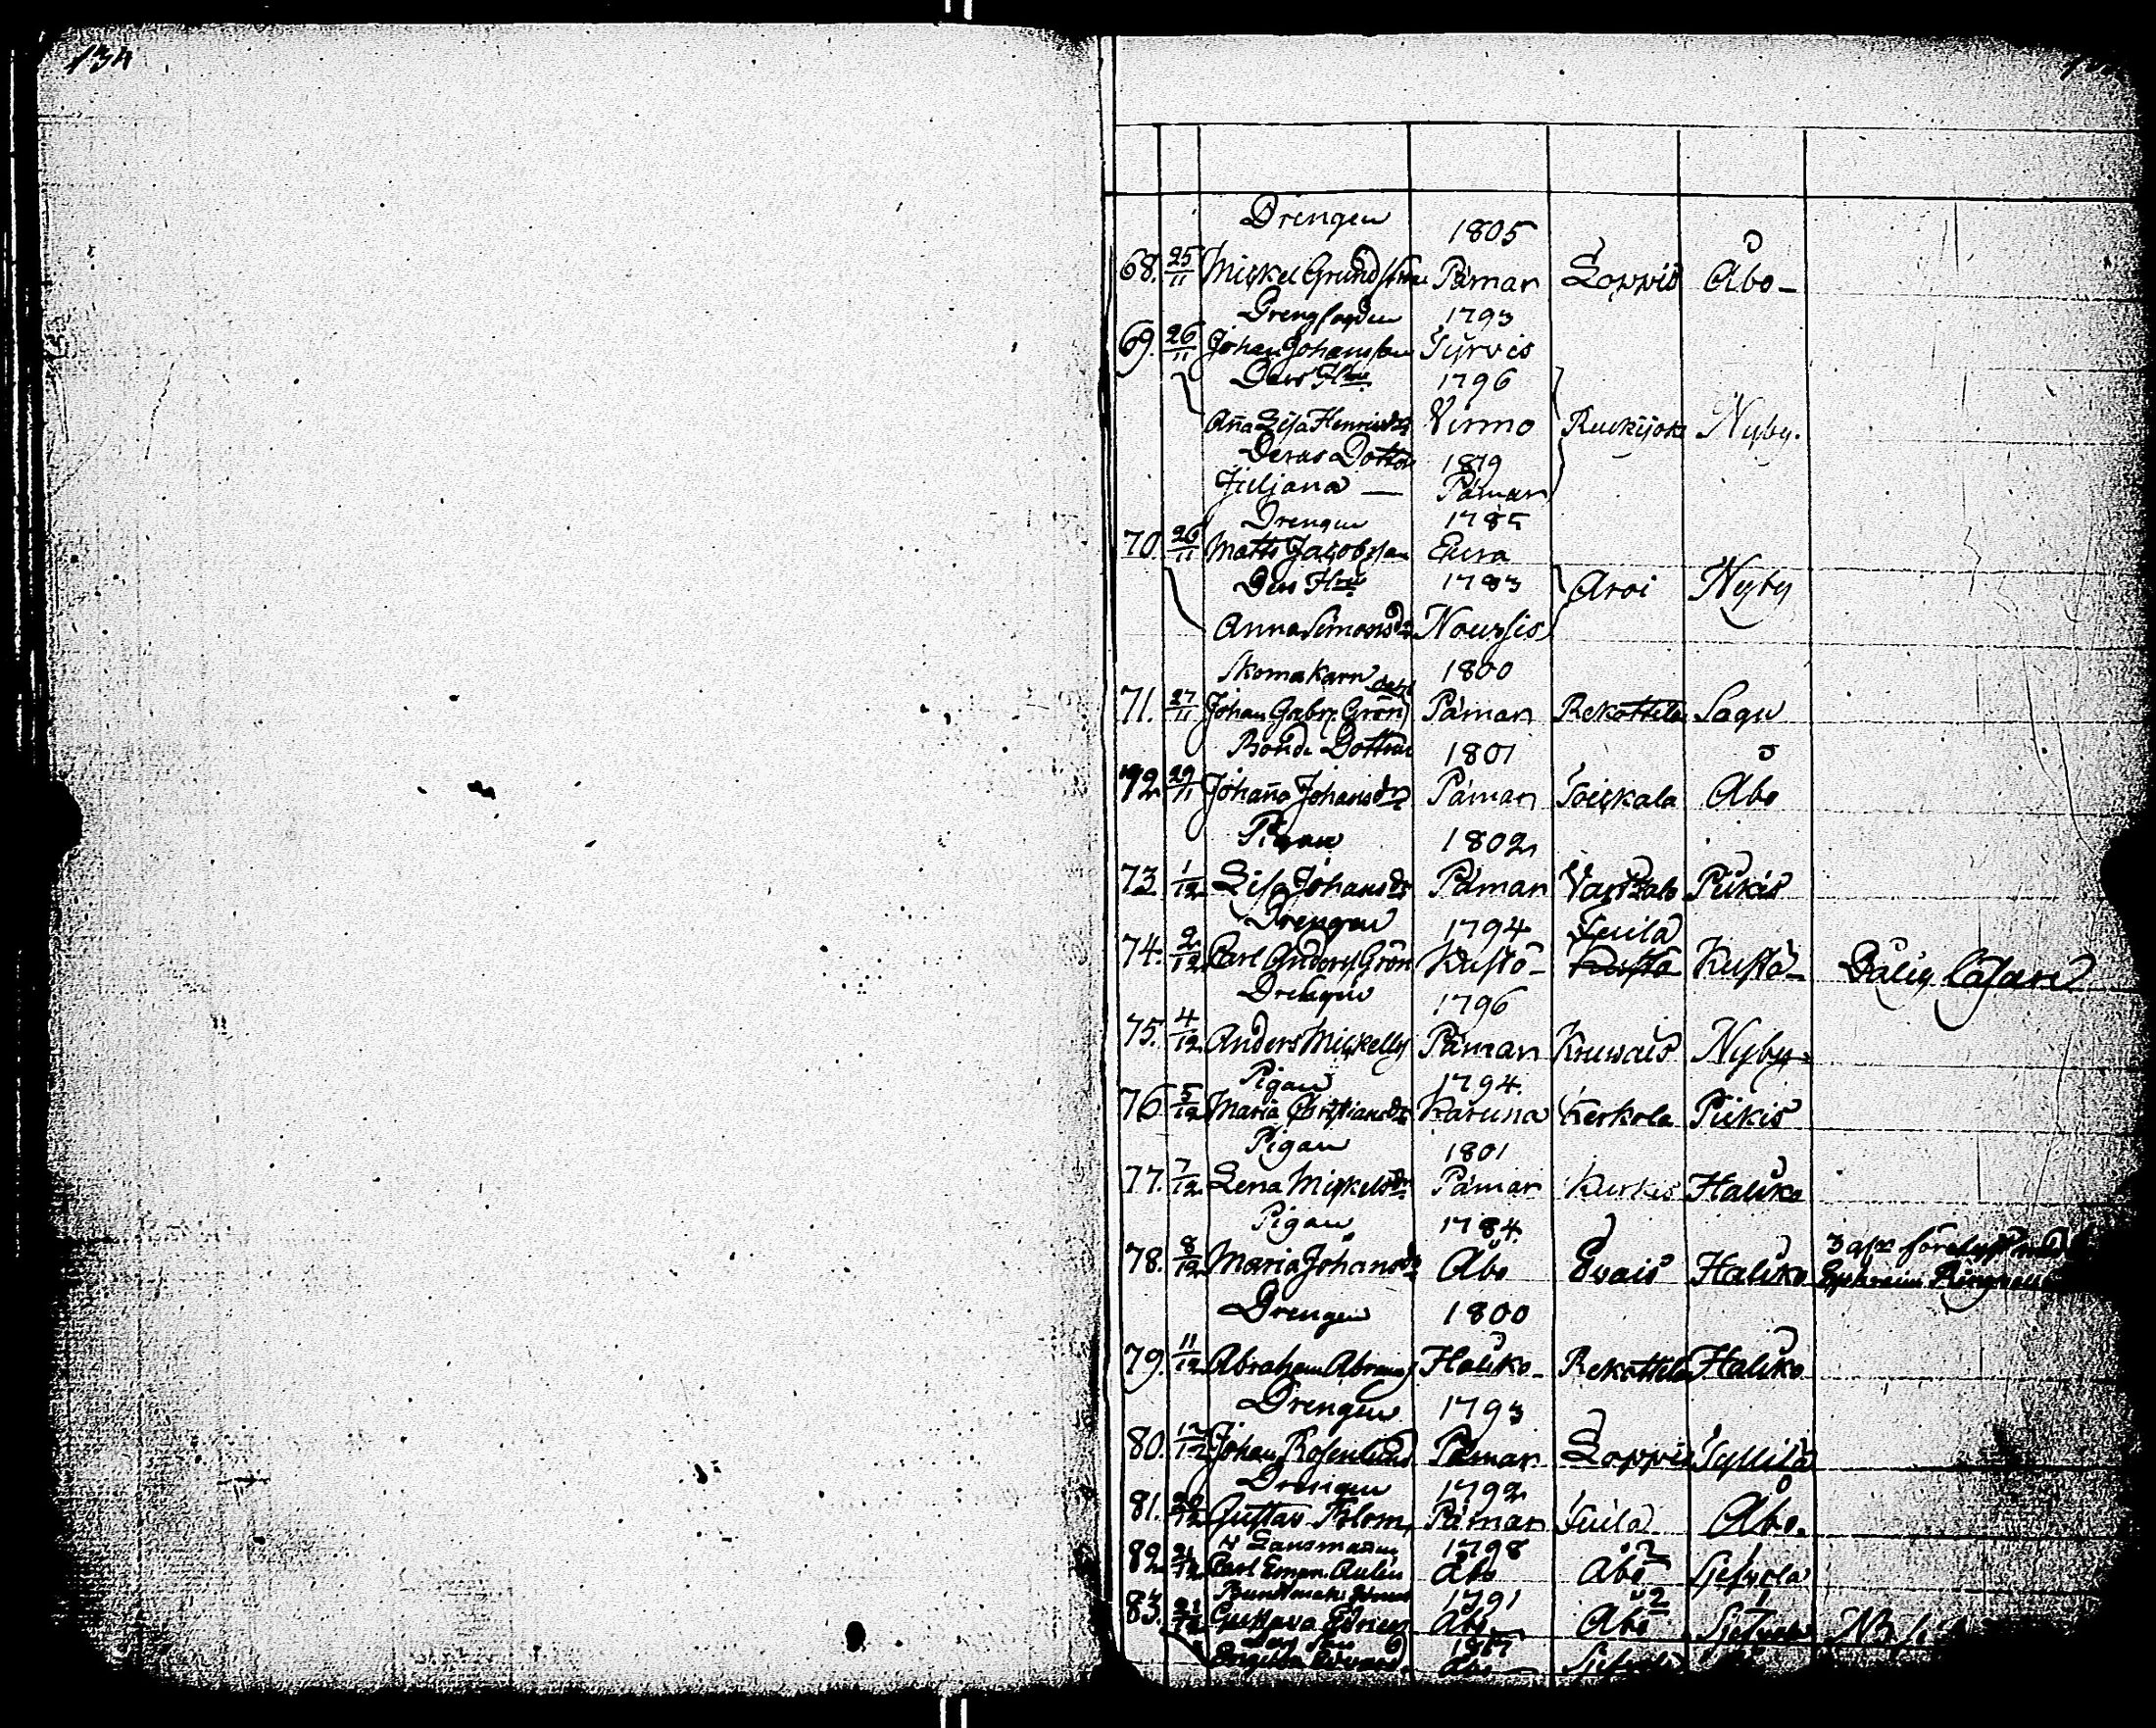 134
Drengen 1805
68. 25/11 Mickel Grundström Pämar Loppis Åbo
Drengfogden 1793
69. 26/11 Johan Johansson Tyrvis
Dess Hu 1796
Aña Lisa Henrics dr Virmo Ruckijoki Nyby.
Deras Dotter 1819
Juliana — Pämar
Drengen 1785
70. 26/11 Matts Jacobsson Eura
Dess Hu 1783 Aroi Nyby
Anna Simons dr Nousis
Skomakarn 1800
71. 27/11 Johan Gabr. Grön Pämar Rekottila Sagu
Bonde Dottren 1801
72 29/11 Johaña Johans dr Pämar Toickala Åbo
Pigan 1802
73 1/12 Lisa Johans dr Pämar Pikis
Drengen 1794 Tuila
74. 2/12 Carl Anders. Grön Kustö Kustö Kustö Dålig läsare
Drengen 1796
75. 4/12 Anders Mickelss Pämar Kruvais Nyby
Pigan 1794
76 5/12 Maria Christians dr Karuna Kerkola Pikis
Pigan 1801
77. 7/12 Lena Mickels dr Pämar Kurkis Haliko
Pigan 1784
78. 8/12 Maria Johans dr Åbo Evais Haliko 3
Ephraim
Drengen 1800
79. 11/12 Abraham Abrams Haliko Rekottila Haliko
Drengen 1793
80. 12/12 Johan Rosenlund Pämar Loppis
Drengen 1792
81. 20/12 Gustav Pämar Tuila Åbo.
Länsmann 1798
82 21/12 Carl Eman. Aulin Åbo Åbo
1791
83. 21/12 Gustava Åbo Åbo
Dess Son
Åbo